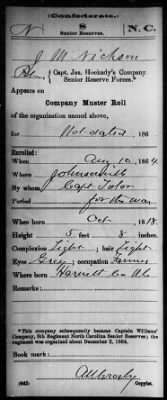 (Confederate.)
N 8 N. C.
Senior Reserves.
J M Nickson
Capt. Jas. Hockady's Company,
Senior Reserve Forces.*
Appears on
Company Muster Roll
of the organization named above,
for Not dated, 186
Enlisted:
When Aug 10, 1864
Where Johnsonville
By whom Capt
Period for the war
When born Oct 1818.
Height 5 feet 8 inches.
Complexion Light; hair Light
Eyes Grey; occupation Farmer
Where born Harnett Co
Remarks:
*This company subsequently became Captain Williams' Company, 8th Regiment North Carolina Senior Reserves; the regiment was organized about December 2, 1864.
Book mark:
(642)
Copyist.